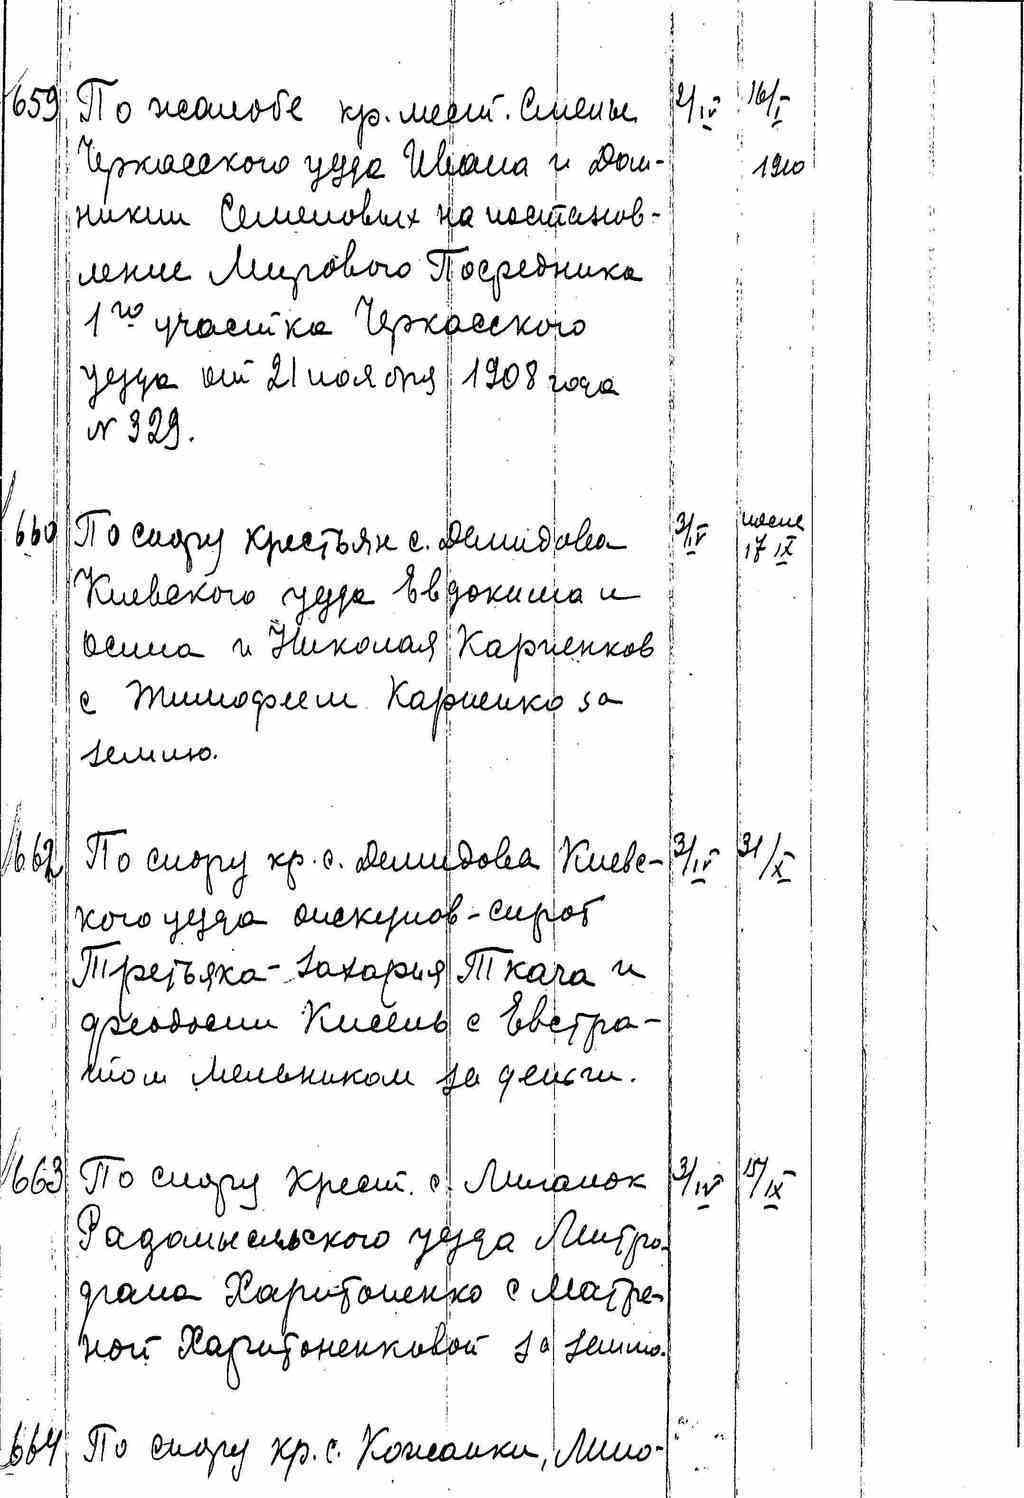 659 По жалобе кр. мест. Смелы 2/IV 16/I
Черкасского уезда Ивана и Дом- 1910
никии Семеновых на постанов-
ление Мирового Посредника
1го участка Черкасского
уезда от 21 ноября 1908 года
N 329.
660 По спору крестьян с. Демидова 3/IV после
Киевского уезда Евдокима и 17 IX
Осипа и Николая Карпенков
с Тимофеем Карпенко за
землю.
662 По спору кр. с. Демидова Киевс- 3/IV 31/X
кого уезда опекунов-сирот
Третьяка - Захария Ткача и
Феодосии Кисель с Евстра-
том Мельником за деньги.
663 По спору крест. с. 3/IV 15/IX
Радомысльского уезда Митро-
фана Харитоненко с Матре-
ной Харитоненковой за землю.
664 По спору кр. с. Кожанки, Липо-